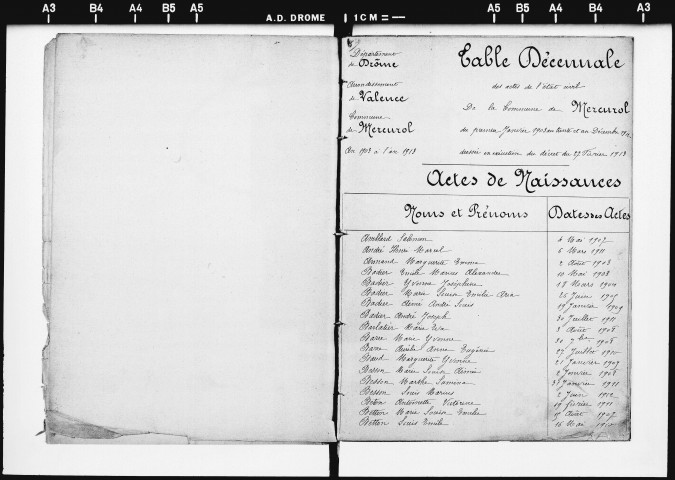 A3 B4 A4 B5 A5 A.D. DROME 1CM= A5 B5 A4 B4 A3
Département
de Drôme
Arrondissement
de Valence
Commune
de Mercurol
An 1903 à l'an 1913
Table Décennale
des actes de l'état civil
De la Commune de Mercurol
du premier Janvier 1903 au trente et un Décembre
dressée en exécution du décret du 27 Février 1913
Actes de Naissances
Noms et Prénoms Dates des Actes
Salomon 4 Mai 1907
André Henri Marcel 5 Mars 1911
Armand Marguerite Emma 2 Août 1903
Badier Emile Marius Alexandre 10 Mai 1908
Badier Yvonne Joséphine 13 Mars
Badier Marie Louise Emilie 25 Juin 1907
Badier André Louis 19 Janvier 1909
Badier André Joseph 30 Juillet 1911
Barlatier Marie 3 Août 1908
Barre Marie Yvonne 30 7bre 1908
Barre Anna Eugénie 27 Juillet 1910
Baud Marguerite Yvonne 21 Janvier 1909
Besson Marie Louise 2 Février 1908
Besson Marthe Janvier 1911
Besson Louis Marius 2 Juin 1912
Antoinette février 1911
Betton Marie Louise Emilie Août 1907
Betton Louis Emile 16 Mai